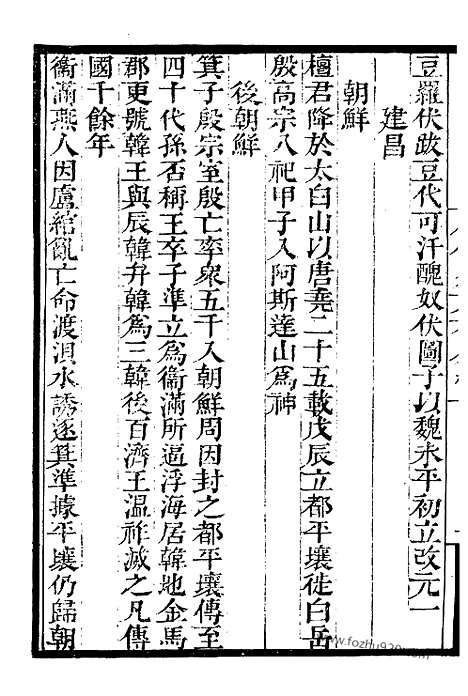 豆羅伏跋豆代可汗醜奴伏圖子以魏永平初立改元一
建昌
朝鮮
檀君降於太白山以唐堯二十五載戊辰立都平壤徙白岳
殷高宗八祀甲子入阿斯達山爲神
後朝鮮
箕子殷宗室殷亡率衆五千入朝鮮周因封之都平壤傳至
四十代孫否稱王卒子準立爲衞滿所逼浮海居韓地金馬
郡更號韓王與辰韓弁韓爲三韓後百濟王溫祚滅之凡傳
國千餘年
衞滿燕人因盧綰亂亡命渡浿水誘逐箕準據平壤仍歸朝
www.fozhu920.com